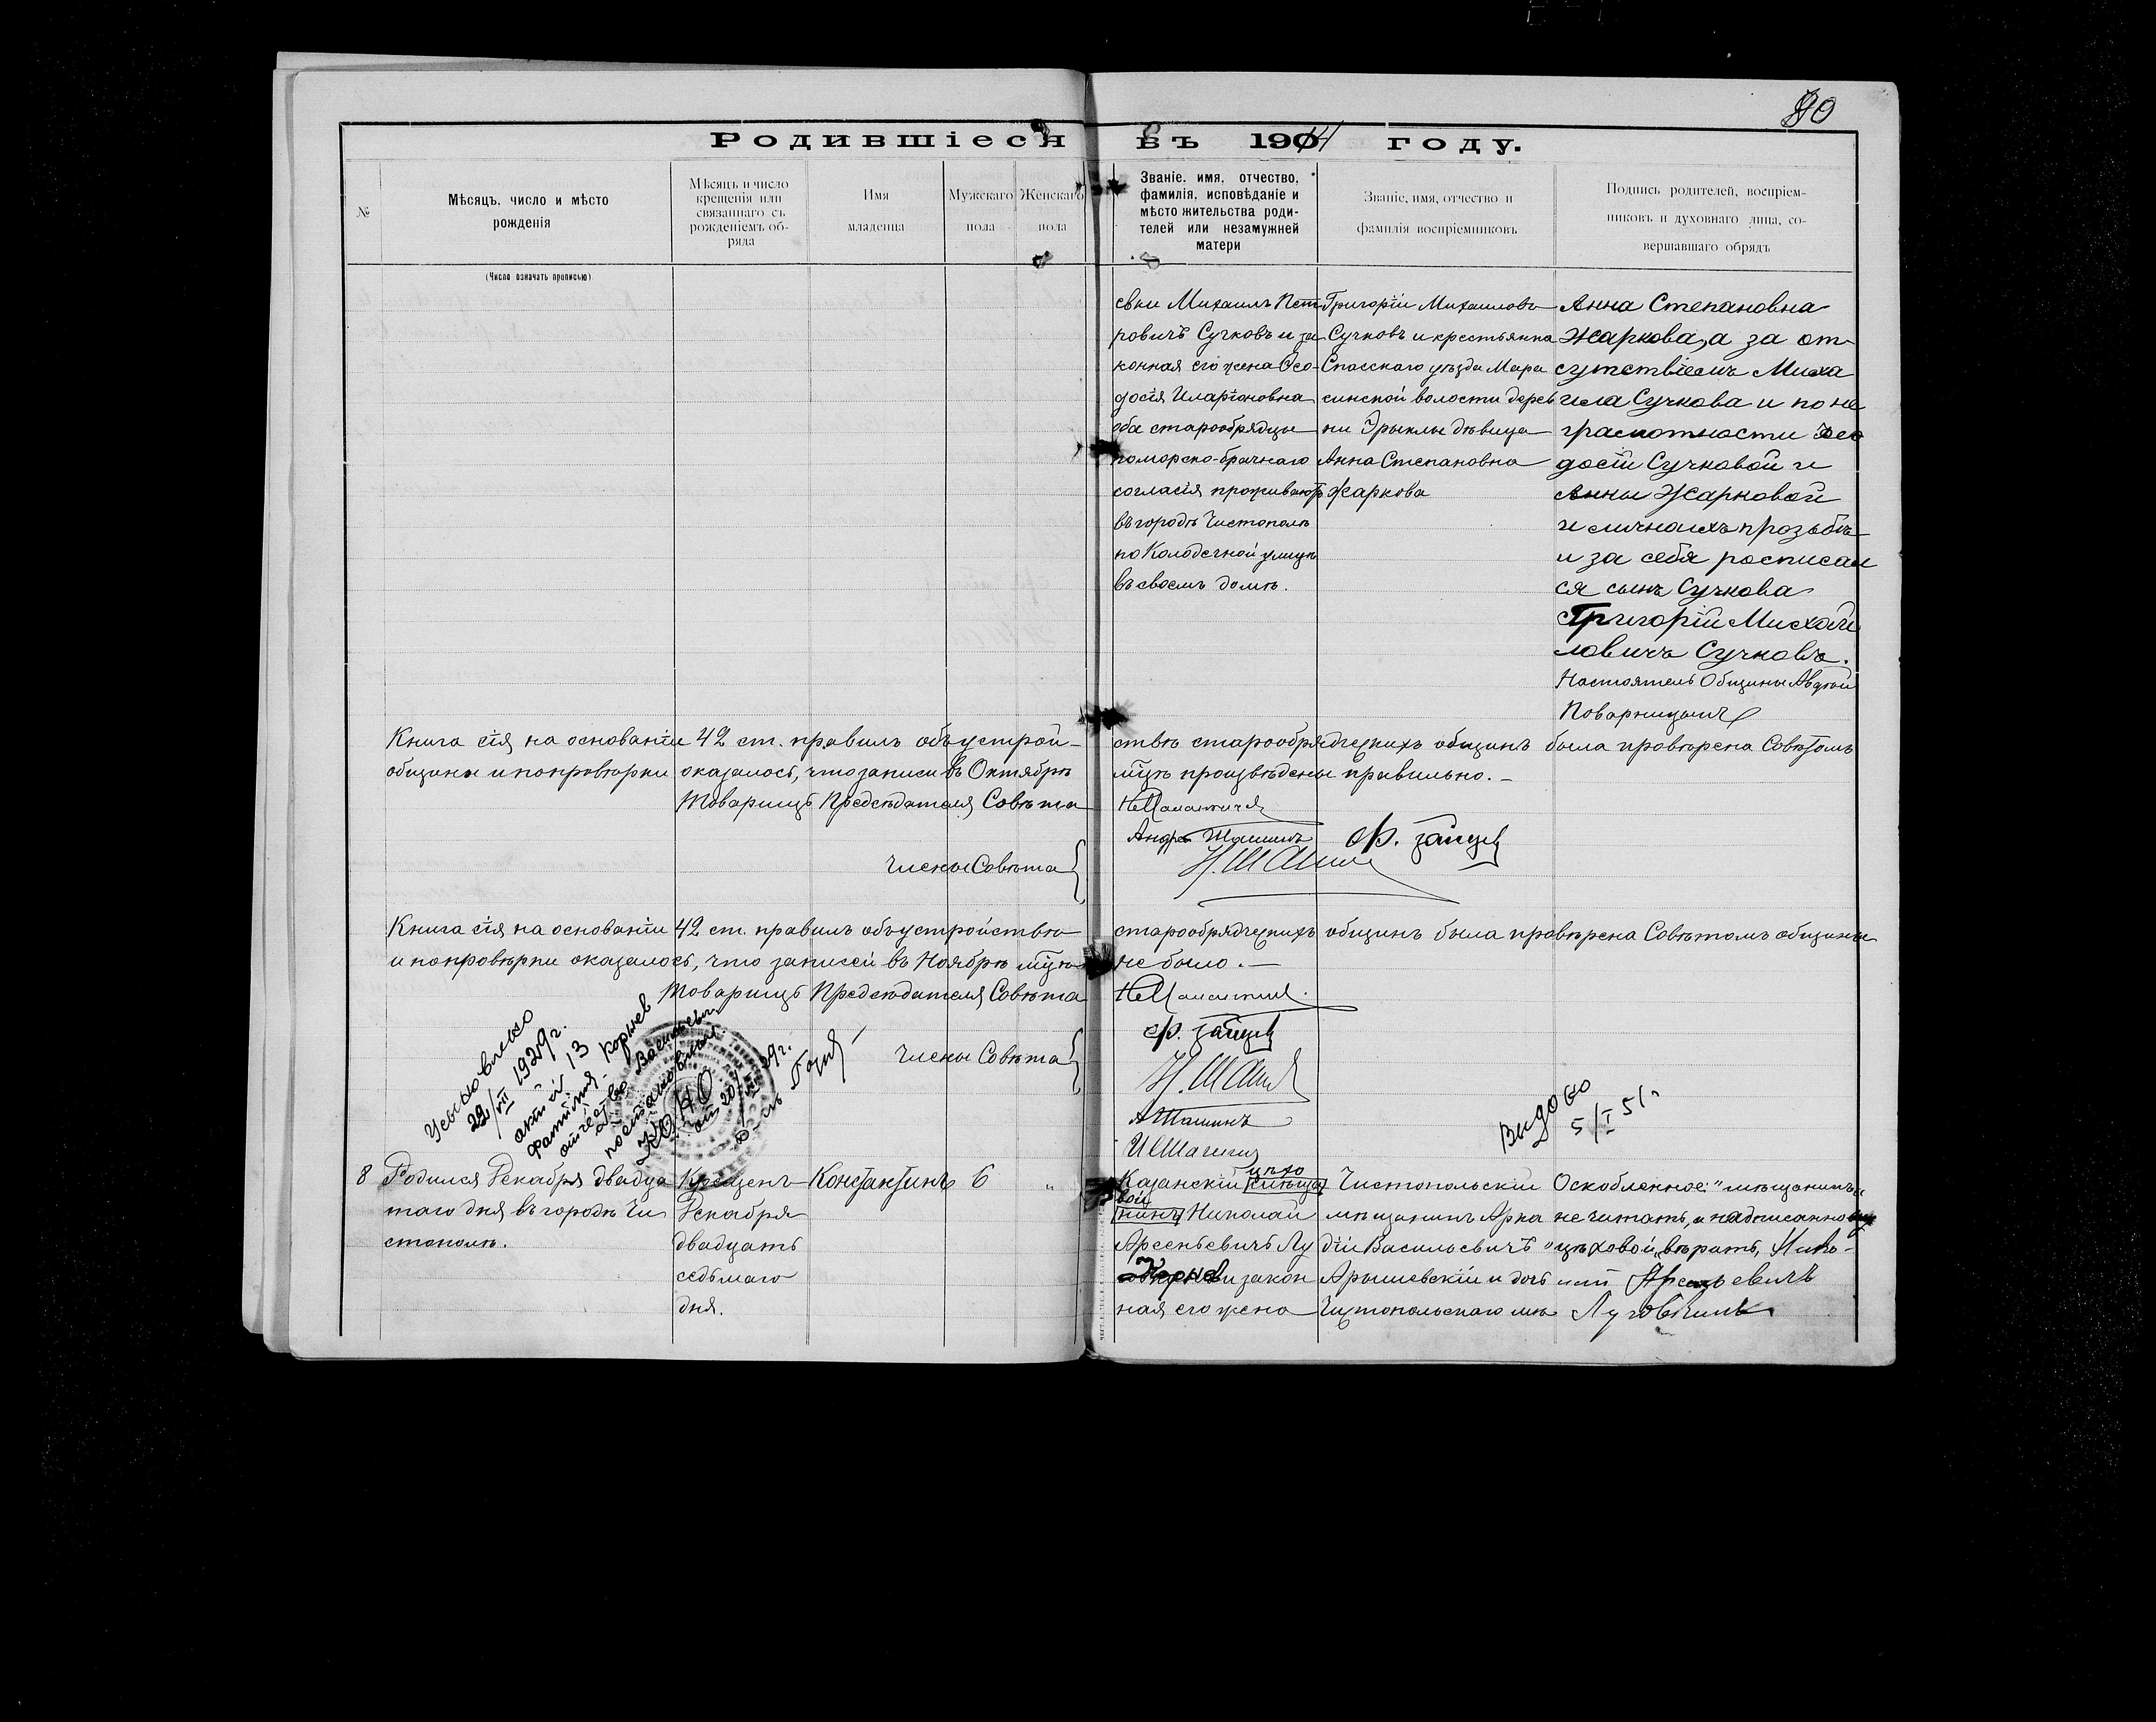 80
Родившіеся въ 1914 году.
№
Мѣсяцъ, число и мѣсто
рожденія
(Число означать прописью)
Мѣсяцъ и число
крещенія или
связаннаго съ
рожденіемъ об-
ряда
Имя
младенца
Мужскаго
пола
Женскаго
пола
Званіе, имя, отчество,
фамилія, исповѣданіе и
мѣсто жительства роди-
телей или незамужней
матери
Званіе, имя, отчество и
фамилія воспріемниковъ
Подпись родителей, воспріем-
никовъ и духовнаго лица, со-
вершавшаго обрядъ
свки Михаилъ Пет
ровичъ Сучковъ и за
конная его жена Ѳео-
досія Иларіоновна
оба старообрядцы
поморско-брачнаго
согласія проживаютъ
въ городѣ Чистополѣ
по Колодечной улицѣ
въ своемъ домѣ.
Григорій Михаиловъ
Сучковъ и крестьянка
Спасскаго уѣзда Мара
синской волости дерев
ни Эрыклы дѣвица
Анна Степановна
Жаркова
Анна Степановна
Жаркова, а за от-
сутствіемъ Миха
ила Сучкова и по не
грамотности Ѳео
досіи Сучковой и
Анны Жарковой
и личной ихъ прозьбѣ
и за себя росписал
ся сынъ Сучкова
Григорій Михаи
ловичъ Сучковъ.
Настоятель Общины Авдѣй
Поварницынъ
Книга сія на основаніи 42 ст. правилъ объ устрой-ствѣ старообрядческихъ общинъ была провѣрена Совѣтомъ
общины и по провѣрки оказалось, что записи въ Октябрѣ м-цѣ произвѣдены правильно.-
Товарищъ Предсѣдателя Совѣта
Андрей Шашинъ Ф. Зайцев
Члены Совѣта
Н. Шашин
Книга сія на основаніи 42 ст. правилъ объ устройствѣ старообрядческихъ общинъ была провѣрена Совѣтомъ общины
и по провѣрки оказалось, что записей въ Ноябрѣ м-цѣ не было.-
Товарищъ Предсѣдателя Совѣта
Ф. Зайцев
Члены Совѣта
Н. Шашин
А Шашинъ
Усыновлено
22/VII 1929 г.
акт № 13
фамилия - Корнев
отчество Васильевич
постановление
от 20/ 29 г.
Выдово
5/I 51 г
8
Родился Декабря двадца
таго дня въ городѣ Чи
стополѣ.
Крещенъ
Декабря
двадцать
седьмаго
дня.
Константинъ
6
"
Казанскій цѣхо
вой
нинъ Николай
Арсеньевичъ Лу
Корнев и закон
ная его жена
Чистопольскій
мѣщанинъ Арка
дій Васильевичъ
Арышевскій и дочь
Чистопольскаго мѣ
Оскобленное: "мѣщанинъ"
не читать, а надписанное
"цѣховой" вѣрить, Нико-
лай Арсеньевичъ
Луговкинъ